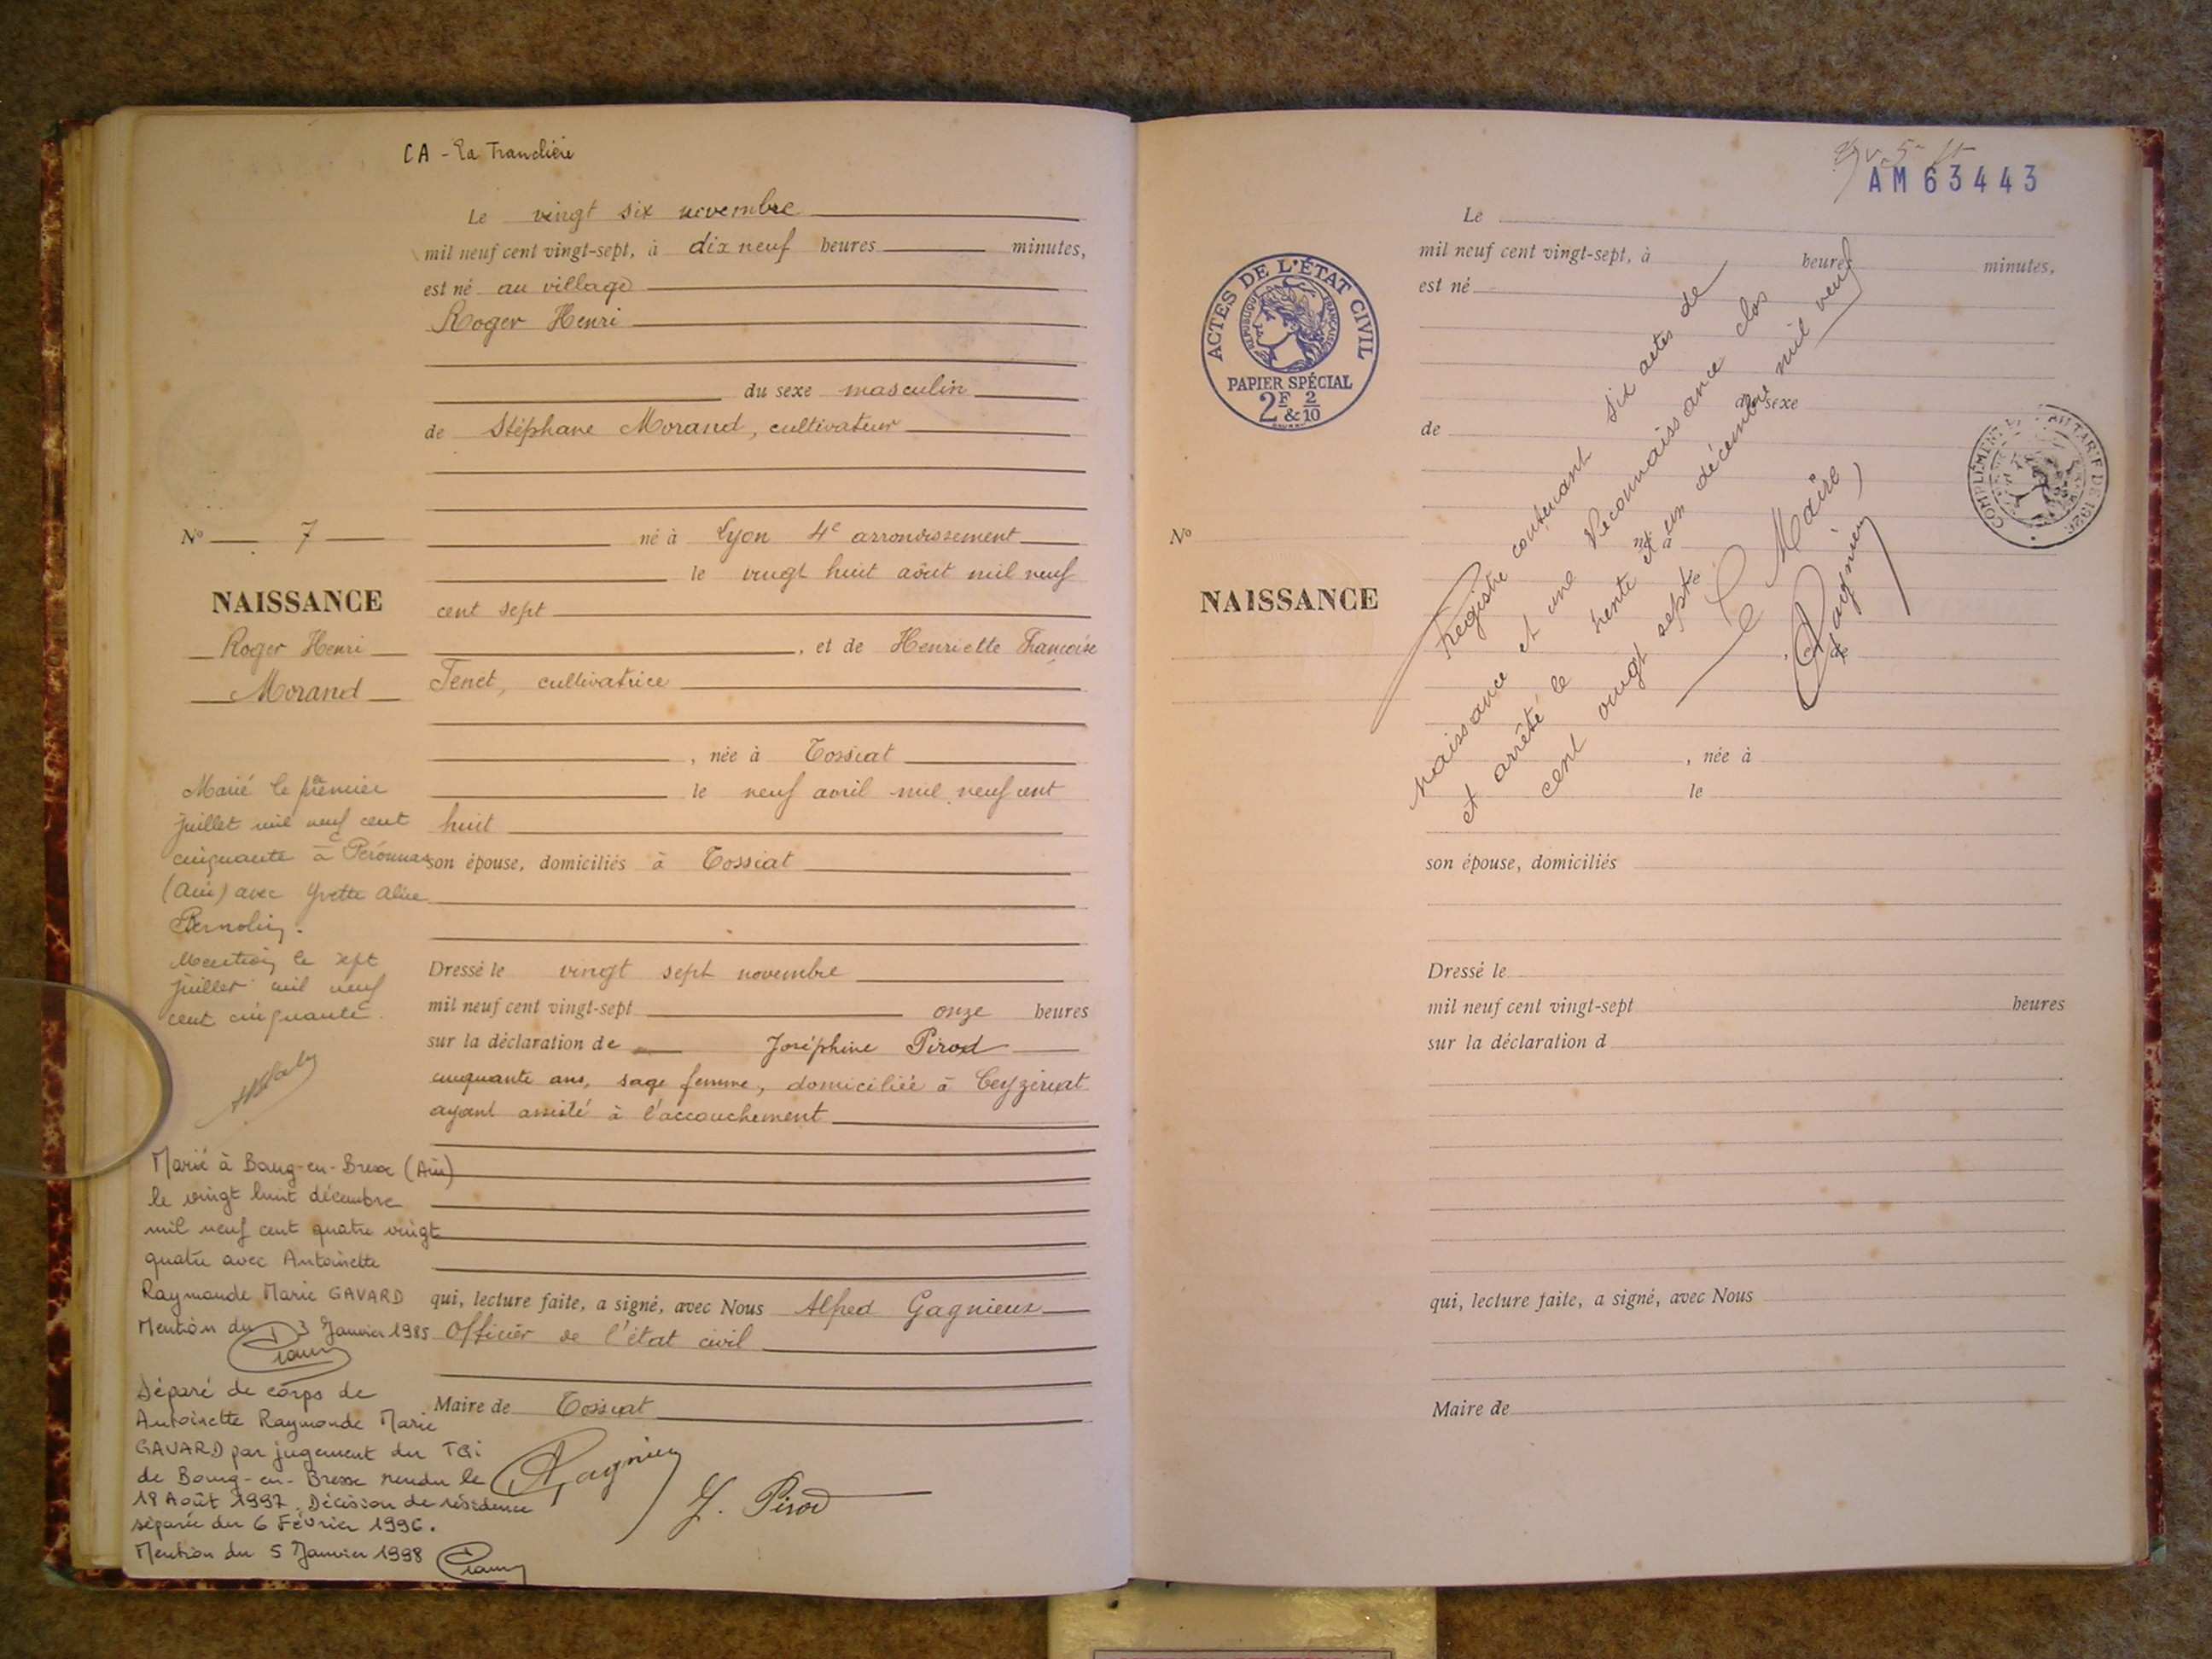 CA - La Tranclière
Le vingt six novembre
mil neuf cent vingt-sept, à dix neuf heures minutes,
est né au village
Roger Henri
du sexe masculin
de Stéphane Morand, cultivateur
N° 7
né à Lyon 4e arrondissement
le vingt huit août mil neuf
cent sept
NAISSANCE
Roger Henri
Morand
, et de Henriette Françoise
Tenet, cultivatrice
, née à Tossiat
le neuf avril mil neuf cent
huit
son épouse, domiciliés à Tossiat
Dressé le vingt sept novembre
mil neuf cent vingt-sept onze heures
sur la déclaration de Joséphine Pirod
cinquante ans, sage femme, domiciliée à Ceyzériat
ayant assisté à l'accouchement
qui, lecture faite, a signé, avec Nous Alfred Gagnieux
Officier de l'état civil
Maire de Tossiat
J. Pirod
Marié le premier
juillet mil neuf cent
cinquante à Péronnas
(Ain) avec Yvette Alice
Bernolin.
Mention le sept
juillet mil neuf
cent cinquante.
Marié à Bourg-en-Bresse (Ain)
le vingt huit décembre
mil neuf cent quatre vingt
quatre avec Antoinette
Raymonde Marie GAVARD
Mention du 3 Janvier 1985
Séparé de corps de
Antoinette Raymonde Marie
GAVARD par jugement du TGI
de Bourg-en-Bresse rendu le
18 Août 1997. Décision de résidence
séparée du 6 Février 1996.
Mention du 5 Janvier 1998
AM 63443
Le
mil neuf cent vingt-sept, à heures minutes,
est né
ACTES DE L'ÉTAT CIVIL
RÉPUBLIQUE FRANÇAISE
PAPIER SPÉCIAL
2F & 2/10
COMPLÉMENT DU TARIF DE 1926
du sexe
de
N°
né à
NAISSANCE
Registre contenant six actes de
naissance et une Reconnaissance clos
et arrêté le trente et un décembre mil neuf
cent vingt sept.
Le Maire,
, née à
le
son épouse, domiciliés
Dressé le
mil neuf cent vingt-sept heures
sur la déclaration d
qui, lecture faite, a signé, avec Nous
Maire de